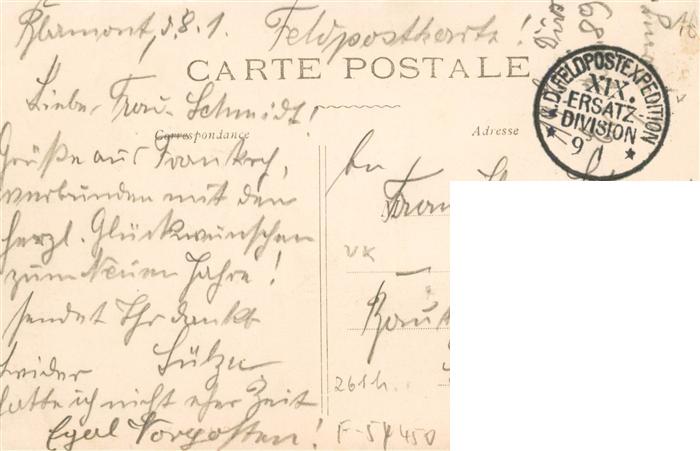 Blamont, d. 8. 1. Feldpostkarte!
CARTE POSTALE
Liebe Frau Schmidt!
Correspondance
Adresse
K.D. FELDPOSTEXPEDITION
XIX.
ERSATZ
DIVISION
9 1
Grüße aus Frankr,
verbunden mit den
herzl. Glückwünschen
zum Neuen Jahre!
sendet Ihr dankb
Leider
hatte ich nicht eher Zeit
Egal Vorposten!
An
Frau
VK
261h.
F-54450